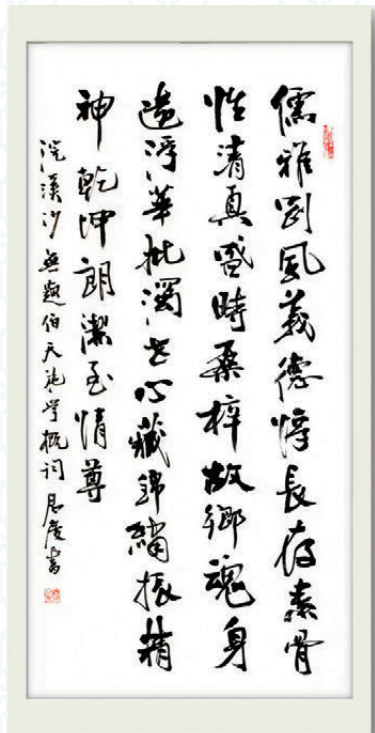 儒雅風義德惇長存素骨
性清真時桑梓故鄉魂身
浮華批濁世心藏錦繡振精
神乾坤朗潔至情尊
浣溪沙無題伯天施學概詞書